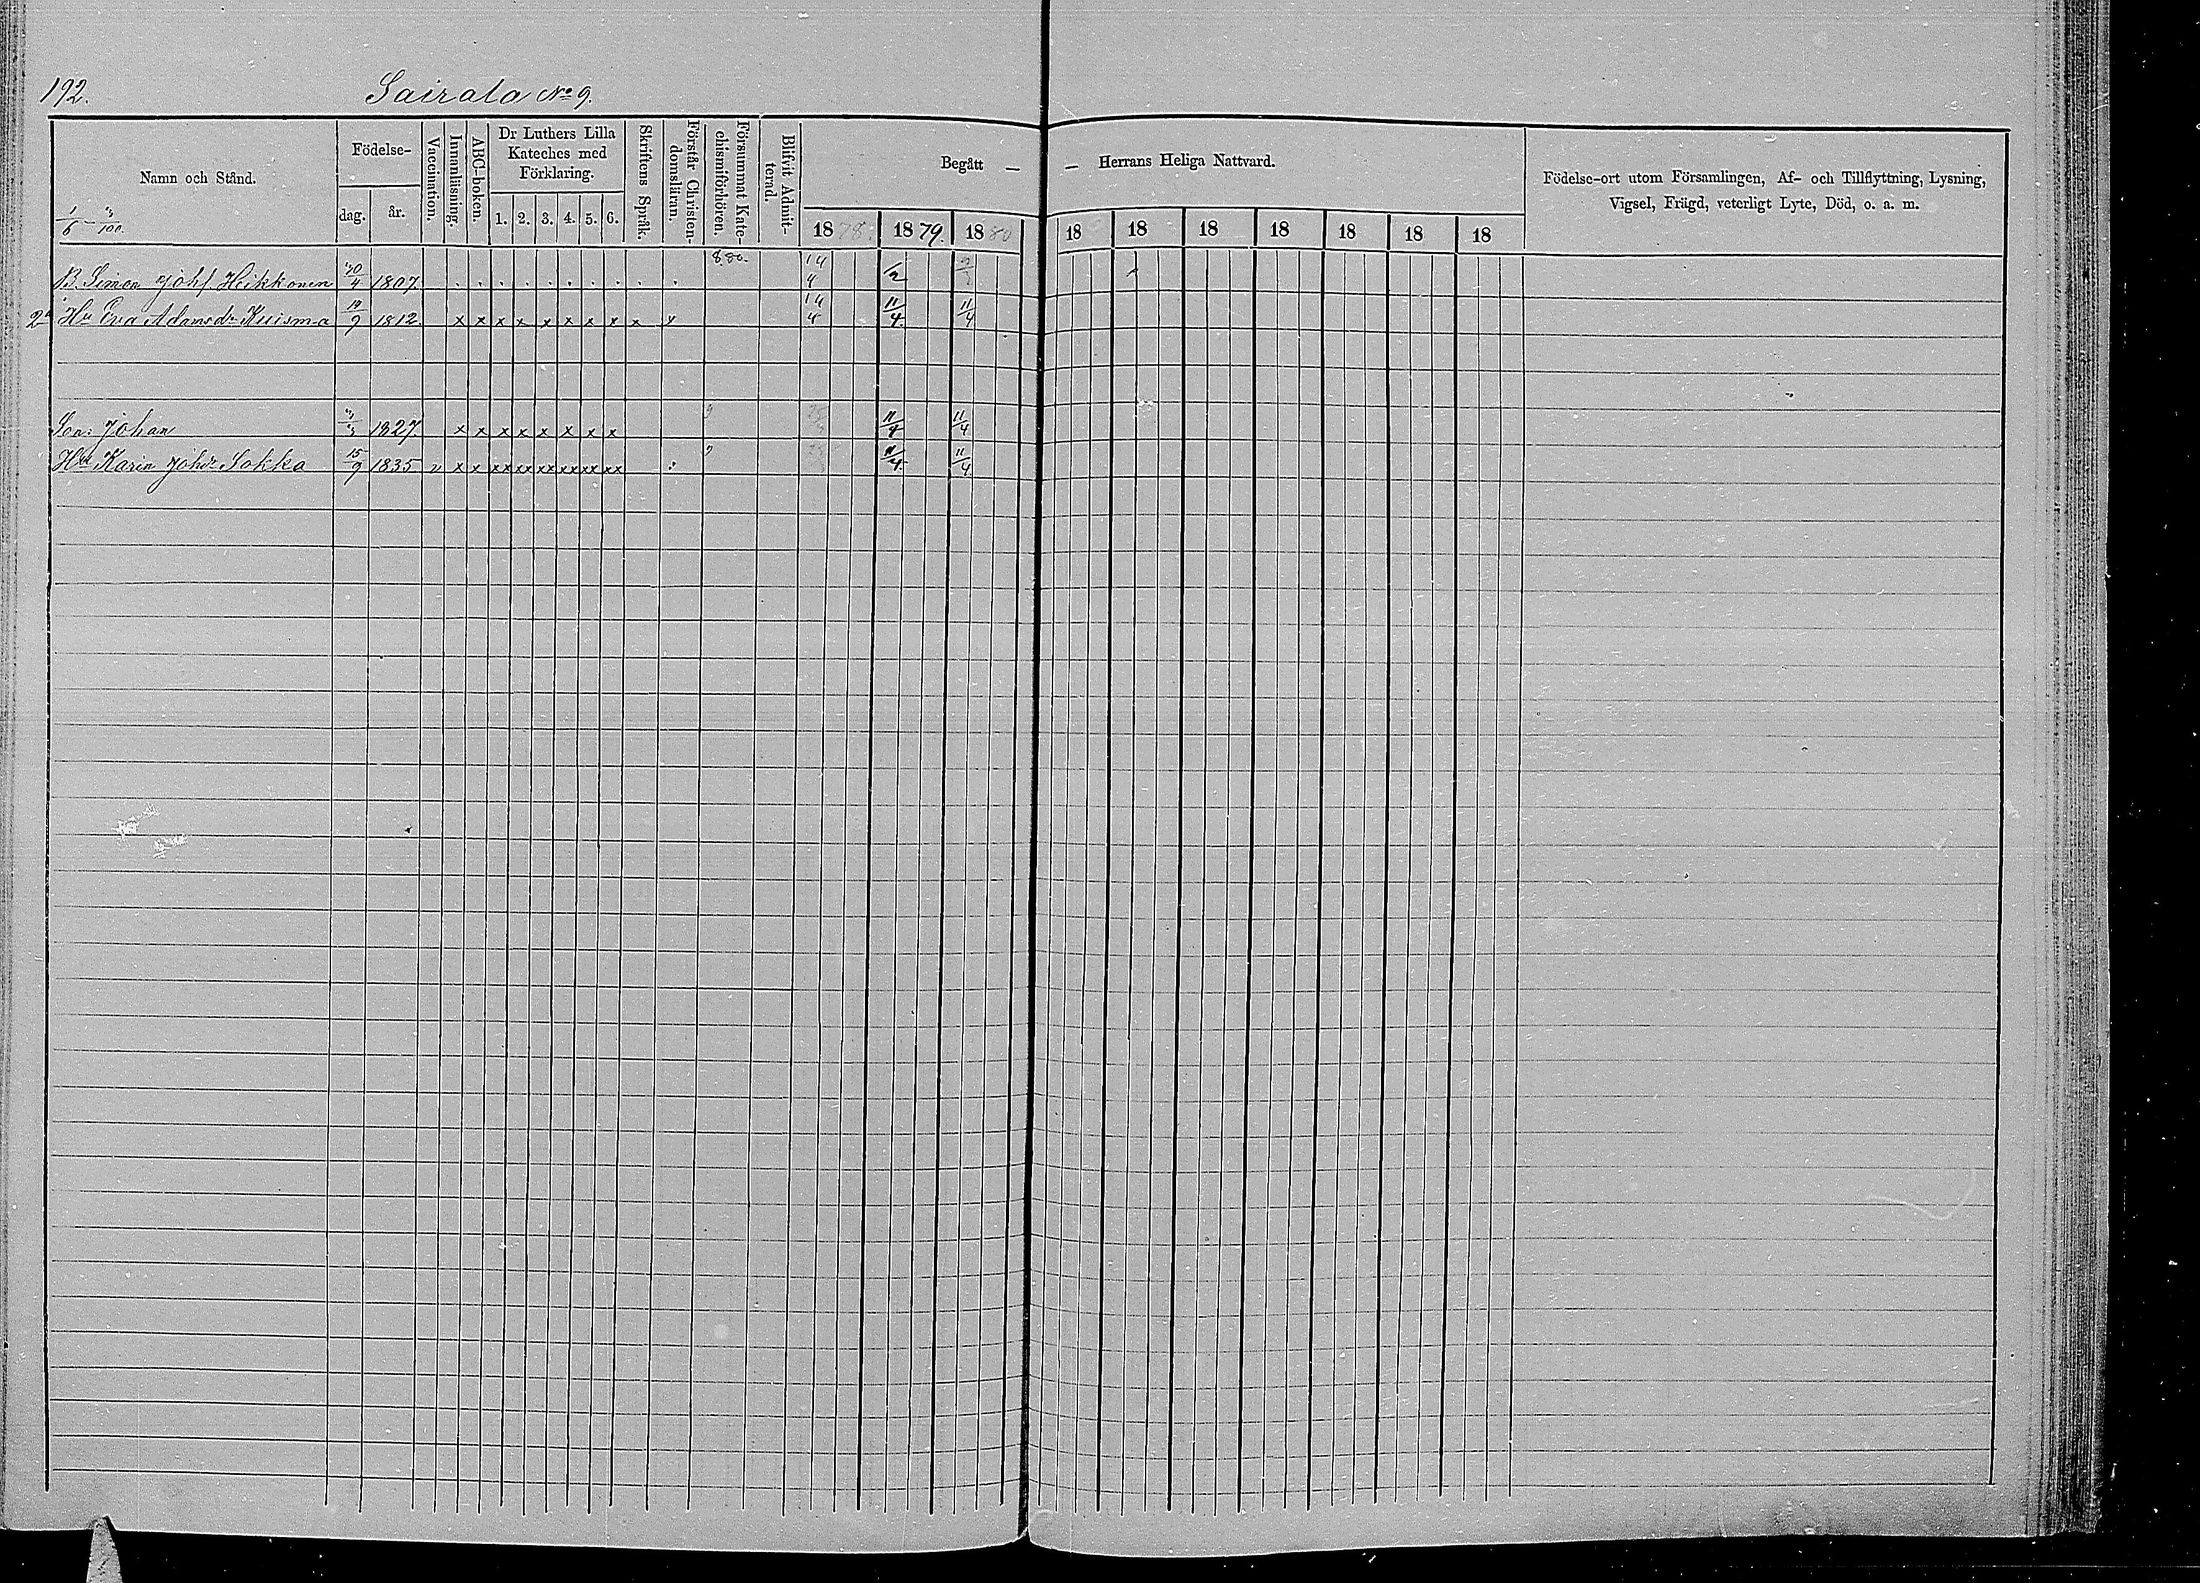 192. Sairala No 9.
Namn och Stånd. Födelse- dag. år. Vaccination. Innanläsning. ABC-boken. Dr Luthers Lilla Kateches med Förklaring. 1. 2. 3. 4. 5. 6. Skriftens Språk. Förstår Christendomsläran. Försummat Katechismiförhören. Blifvit Admitterad. Begått — — Herrans Heliga Nattvard. Födelse-ort utom Församlingen, Af- och Tillflyttning, Lysning,
Vigsel, Frägd, veterligt Lyte, Död, o. a. m.
1878. 1879. 1880 18 18 18 18 18 18 18
B. Simon Johs. Heikkonen 30/4 1807. . . . . . . . . . . 8.80. 14/4 1/2
2a Hu Eva Adamsdr Kuisma 19/9 1812 x x x x x x x x x x 14/4 11/4. 11/4
Son: Johan 1827. x x x x x x x x 11/4 11/4
Hu Karin Johsdr Sokka 15/9 1835 v x x xx xx xx xx xx xx : 11/4. 11/4